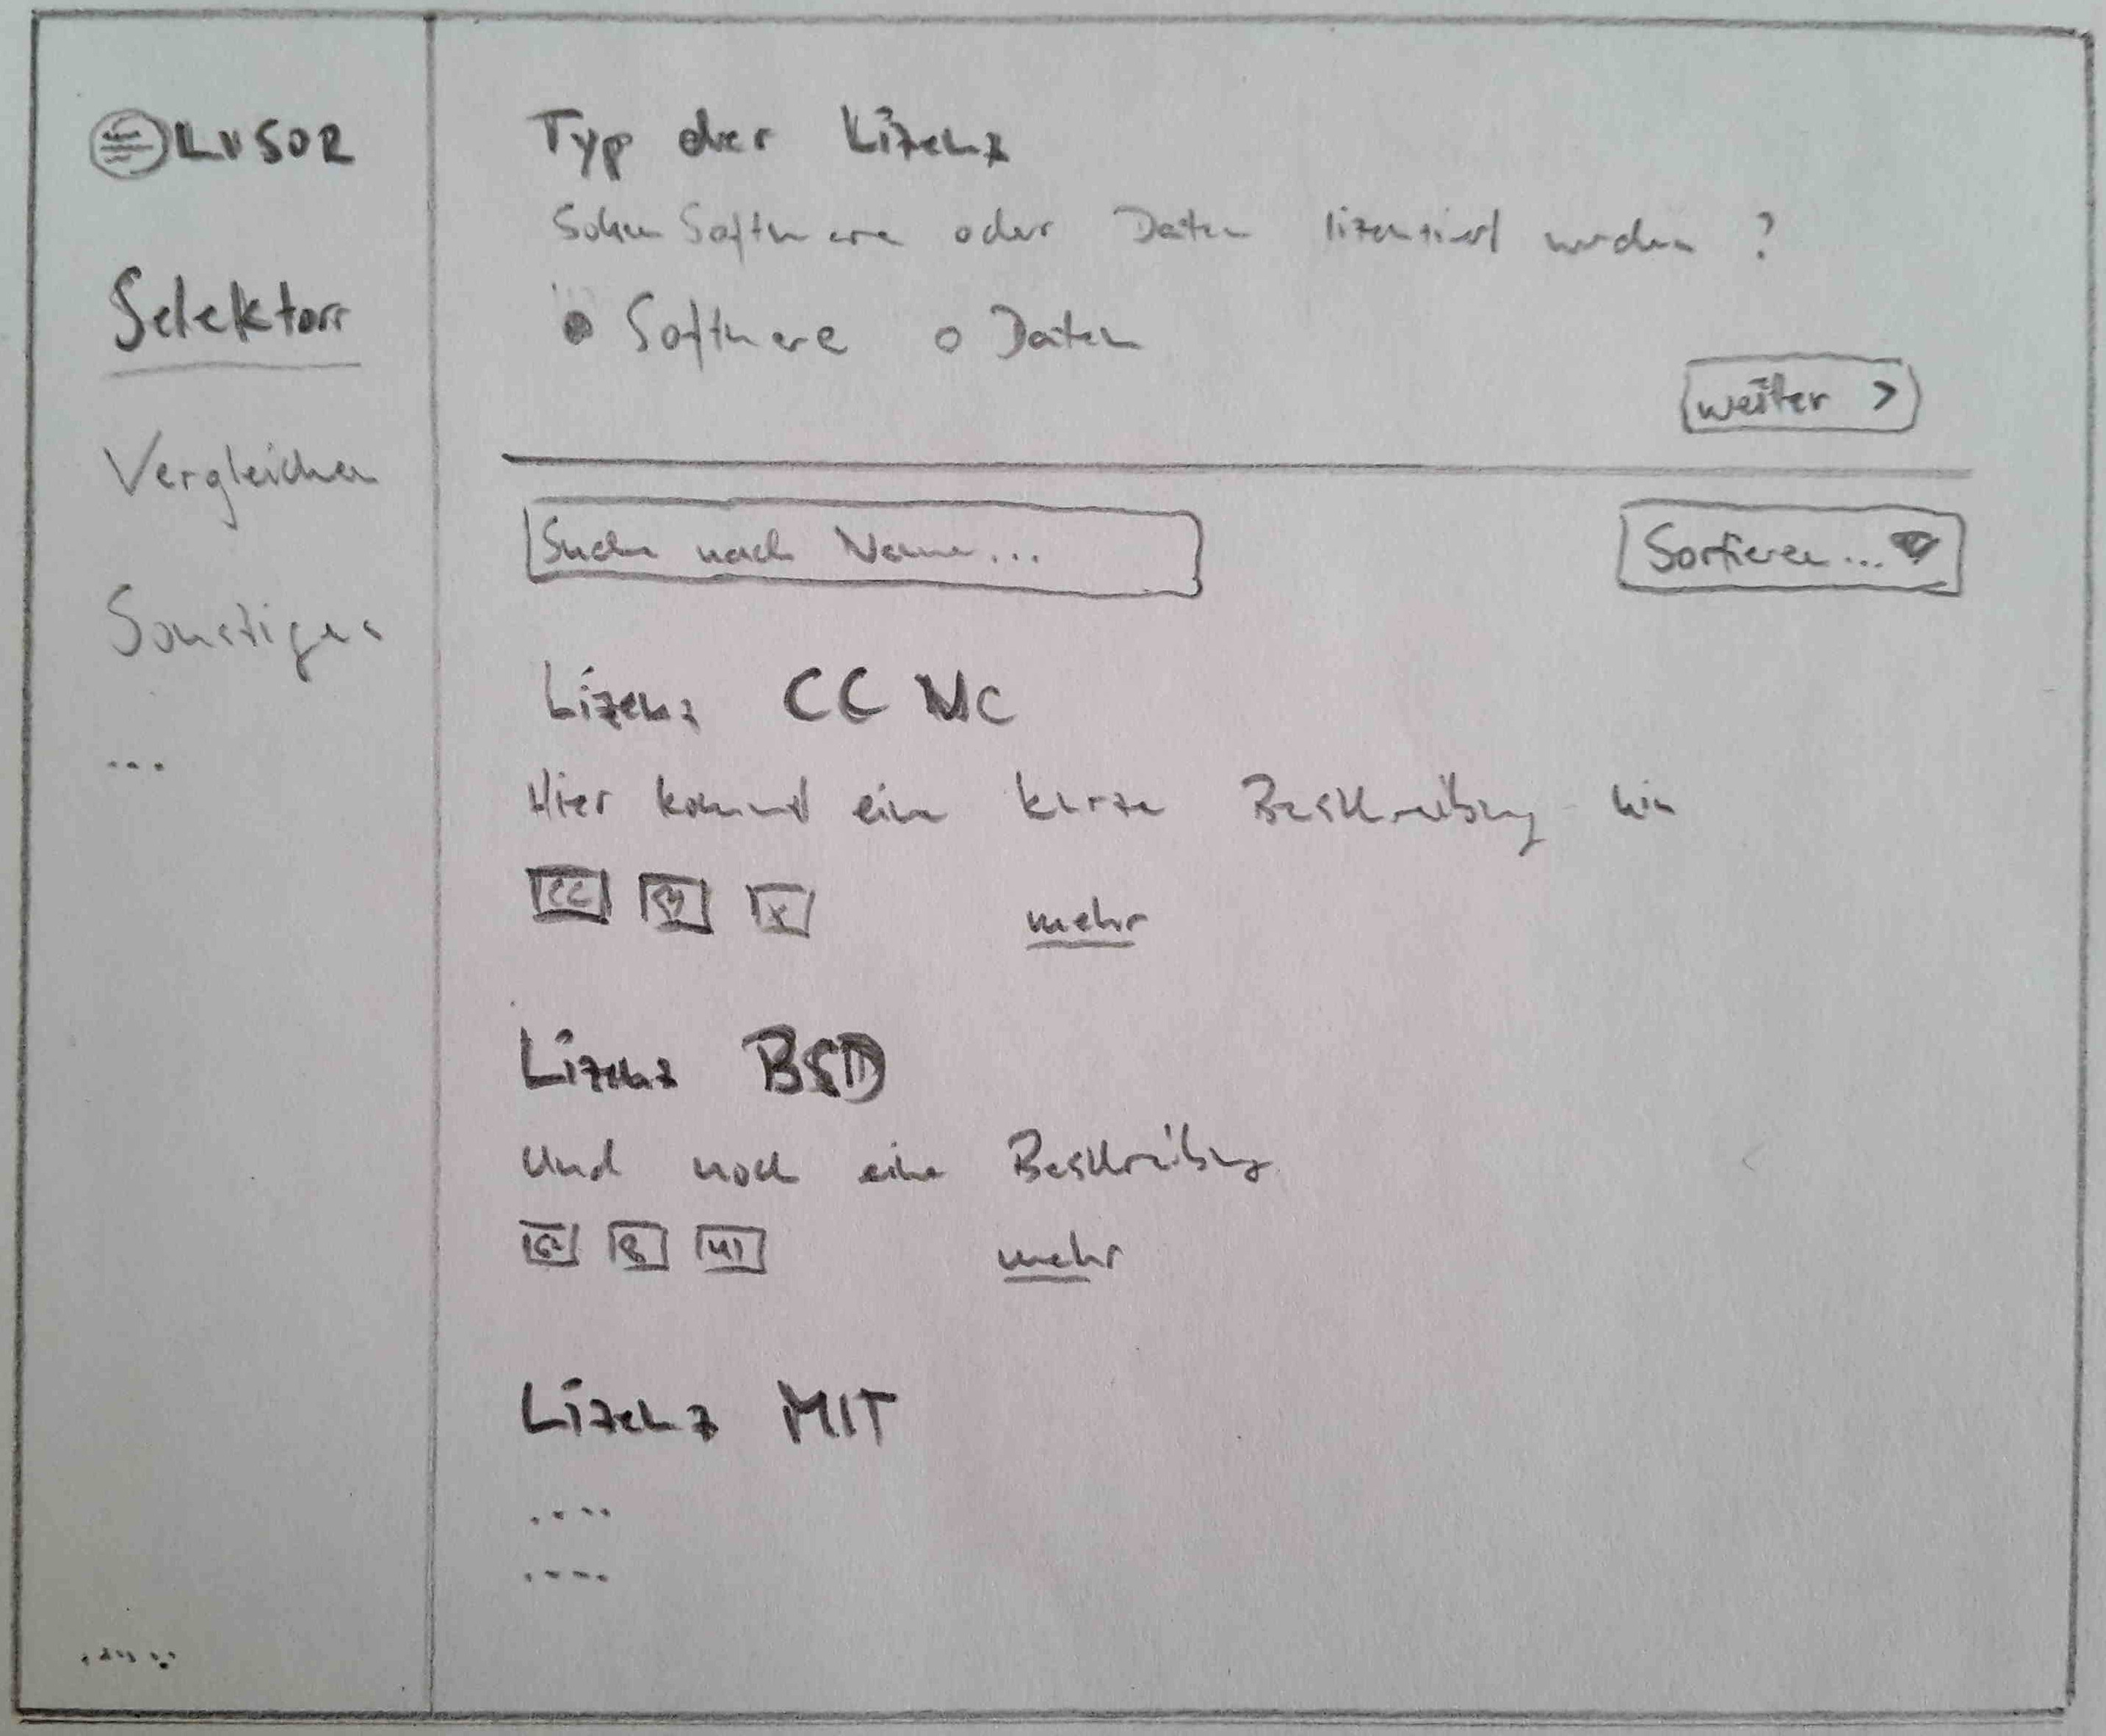 LUSOR
Selektor
Vergleichen
Sonstiges
...
Typ der Lizenz
Sollen Software oder Daten lizensiert werden ?
Software Daten
weiter >
Suche nach Name...
Sortieren...
Lizenz CC NC
Hier kommt eine kurze Beschreibung hin
CC
mehr
Lizenz BSD
Und noch eine Beschreibung
mehr
Lizenz MIT
....
....